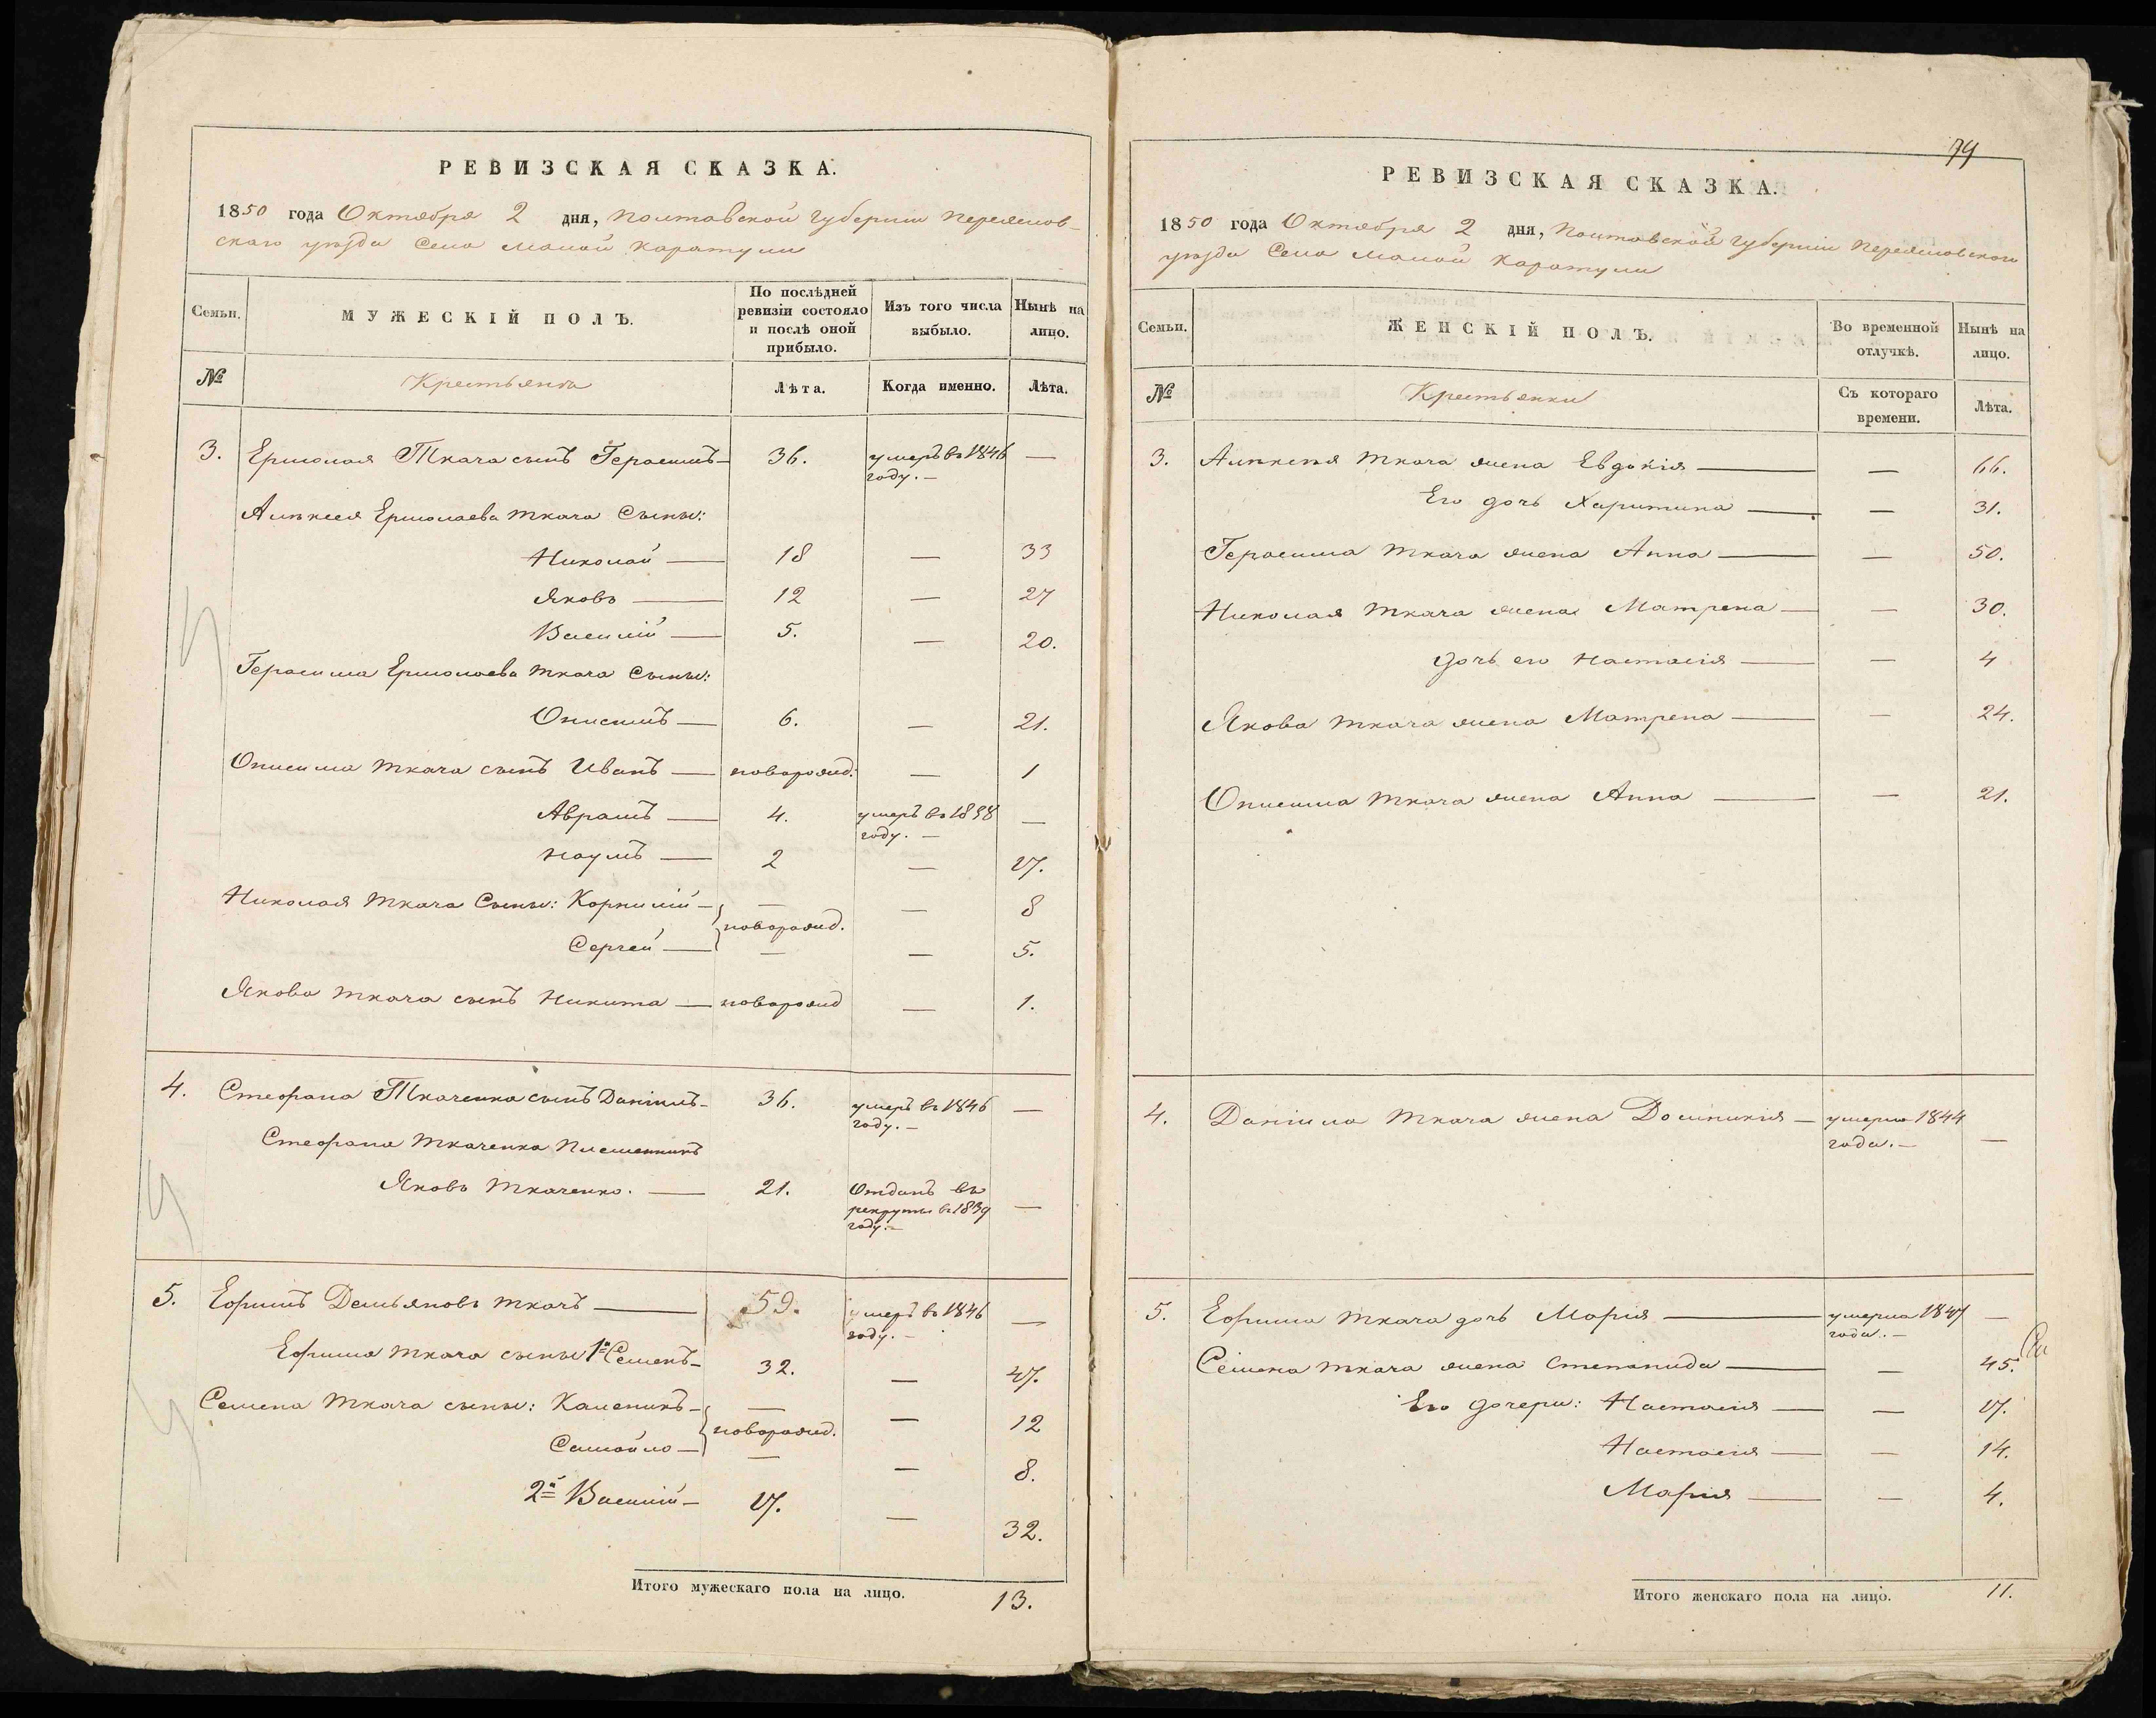 РЕВИЗСКАЯ СКАЗКА.
1850 года Октября 2 дня, Полтавской губернии Переяслов-
скаго уезда Села Малой Каратули
Семьи.
МУЖЕСКІЙ ПОЛЪ.
По послѣдней
ревизіи состояло
и послѣ оной
прибыло.
Изъ того числа
выбыло.
Нынѣ на
лицо.
№
Крестьяне
Лѣта.
Когда именно.
Лѣта.
3. Ермолая Ткача сынъ Герасимъ — 36. умеръ въ 1846 —
году. —
Алѣксея Ермолаева Ткача Сыны:
Николай — 18 — 33
Яковъ — 12 — 27
Василій — 5. — 20.
Герасима Ермолаева Ткача Сыны:
Онисимъ — 6. — 21.
Онисима Ткача сынъ Иванъ — новорожд. — 1
Аврамъ — 4. умеръ въ 1838 —
году. —
Наумъ — 2 — 17.
Николая Ткача Сыны: Корнилій — — — 8
новорожд.
Сергей — — — 5.
Якова Ткача сынъ Никита — новорожд — 1.
4. Стефана Ткаченка сынъ Даніилъ — 36. умеръ въ 1846 —
году. —
Стефана Ткаченка Племенникъ
Яковъ Ткаченко. — 21. Отданъ въ
рекруты въ 1839 —
году. —
5. Ефимъ Демьяновъ Ткачъ — 59. умеръ въ 1846 —
году. —
Ефима Ткача сыны 1й Семенъ — 32. — 47.
Семена Ткача сыны: Каленикъ — — — 12
новорожд.
Самойло — — — 8.
2й Василій — 17. — 32.
Итого мужескаго пола на лицо. 13.
79
РЕВИЗСКАЯ СКАЗКА.
1850 года Октября 2 дня, Полтавской губерніи Переясловского
уезда Села Малой Каратули
Семьи.
ЖЕНСКІЙ ПОЛЪ.
Во временной
отлучкѣ.
Нынѣ на
лицо.
№
Крестьянки
Съ котораго
времени.
Лѣта.
3. Алѣксея Ткача жена Евдокія — — 66.
Его дочь Харитина — — 31.
Герасима Ткача жена Анна — — 50.
Николая Ткача жена Матрена — — 30.
дочь его Настасія — — 4
Якова Ткача жена Матрена — — 24.
Онисима Ткача жена Анна — — 21.
4. Даніила Ткача жена Домникія — умерла 1844
года. — —
5. Ефима Ткача дочь Марія — умерла 1847 —
года. —
Семена Ткача жена Степанида — — 45.
Его дочери: Настасія — — 17.
Настасія — — 14.
Марія — — 4.
Итого женскаго пола на лицо. 11.